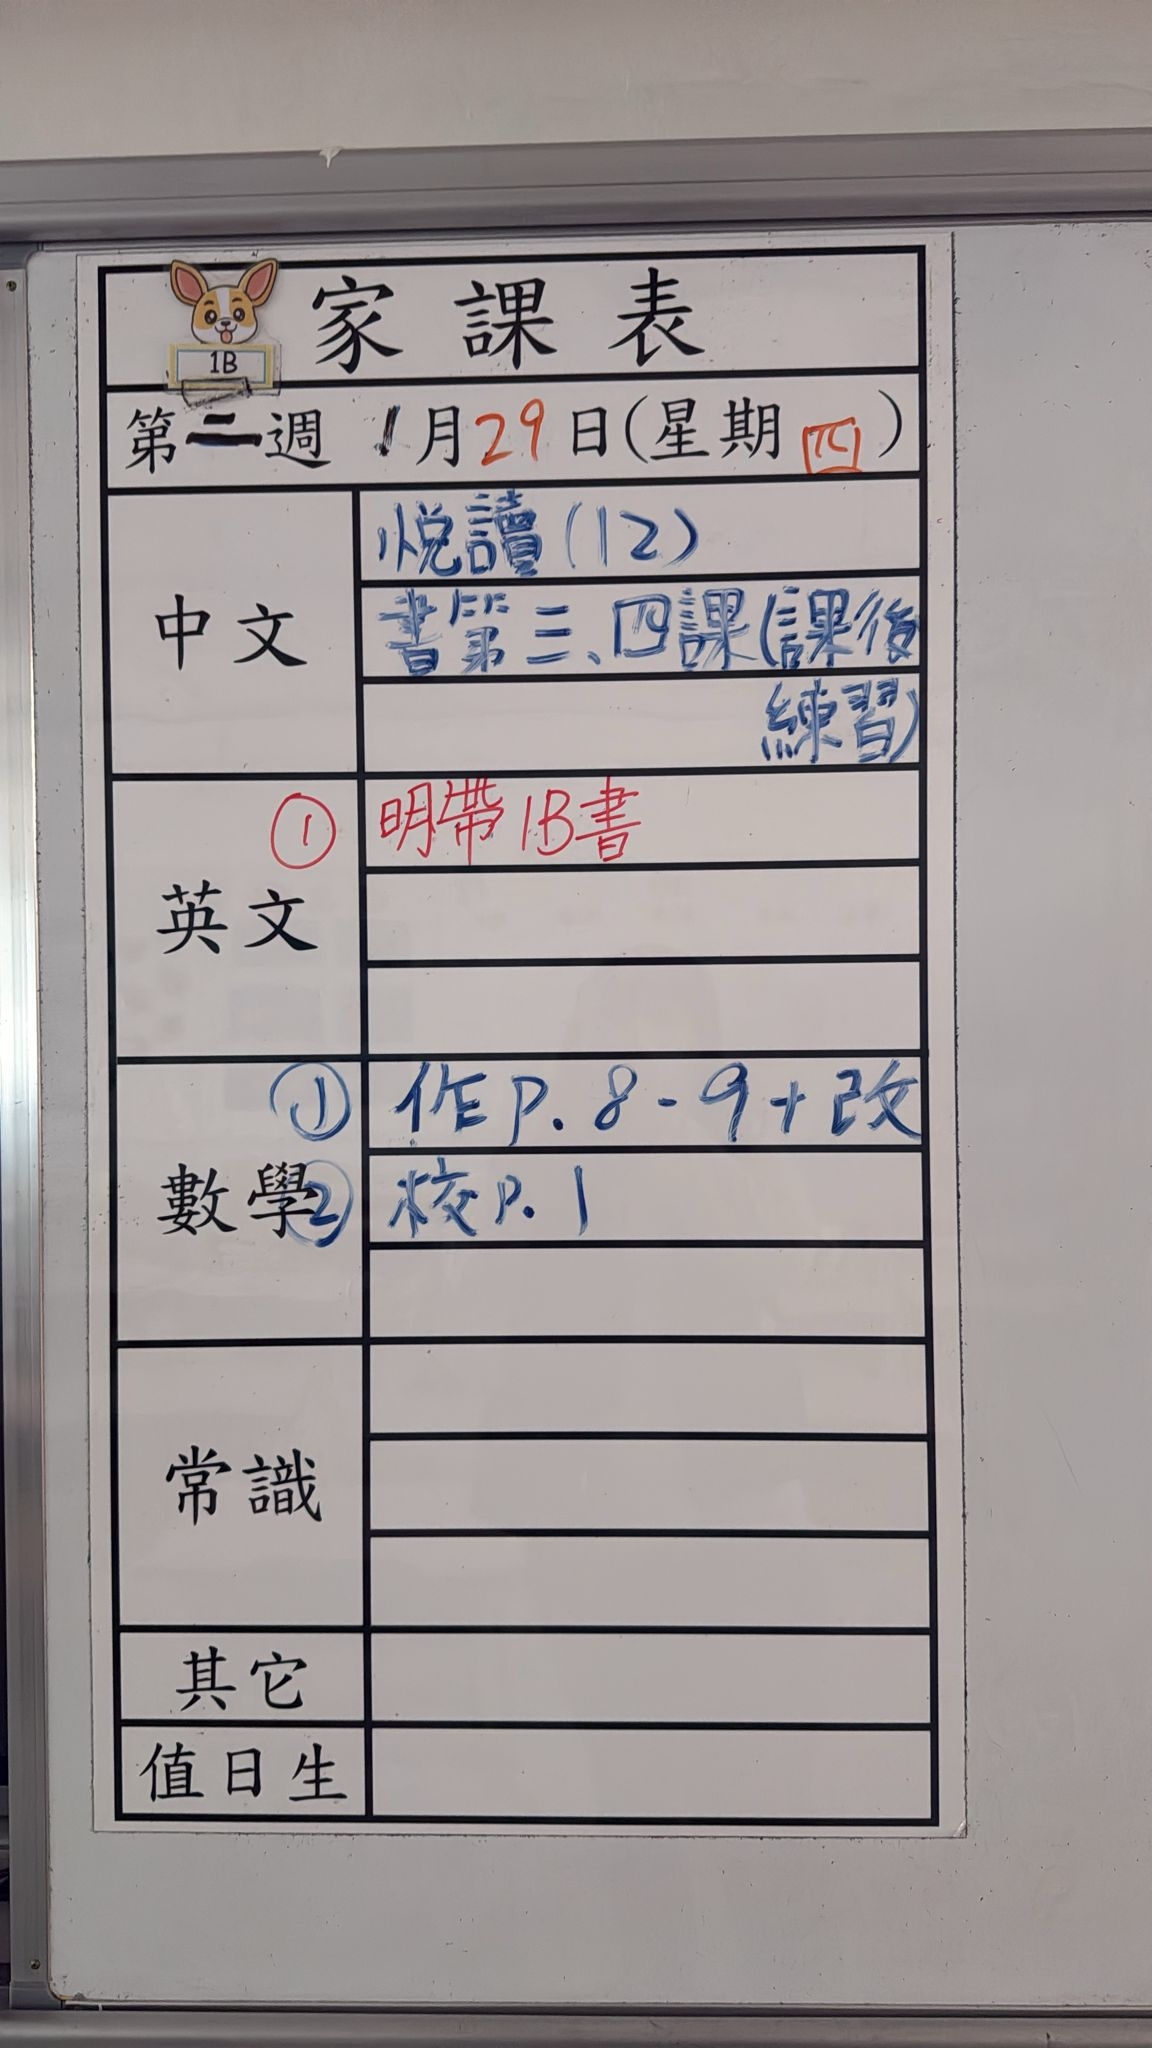 1B
家課表
第二週 1月29日(星期四)
中文
悅讀(12)
書第三、四課(課後
練習)
英文
① 明帶1B書
數學
① 作P.8-9+改
② 校P.1
常識
其它
值日生